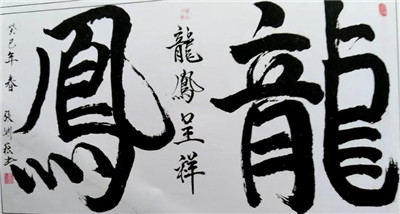 龍
鳳
龍鳳呈祥
癸巳年春